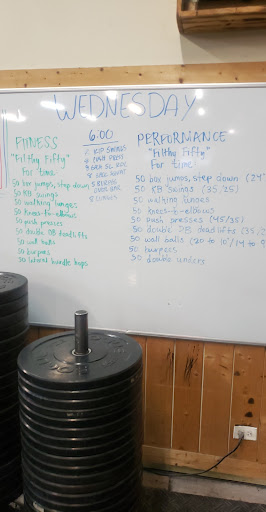 WEDNESDAY
FITNESS
"Filthy Fifty"
For time
50 box jumps, step down
50 KB swings
50 walking lunges
50 knees-to-elbows
50 push presses
50 double DB deadlifts
50 wall balls
50 burpees
50 lateral hurdle hops
6:00
PERFORMANCE
"Filthy Fifty"
For time
50 box jumps, step down (24"
50 KB swings (35/25)
50 walking lunges
50 knees-2-elbows
50 push presses (45/35)
50 double DB deadlifts (35/2
50 wall balls (20 to 10'/14 to 9
50 burpees
50 double unders